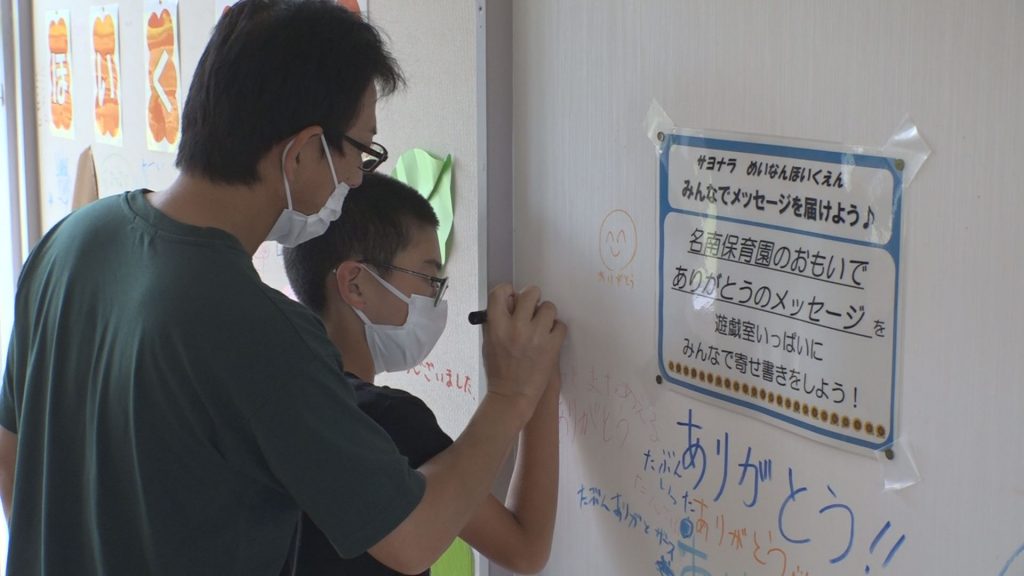 ほ
い
く
サヨナラ めいなんほいくえん
みんなでメッセージを届けよう♪
名南保育園のおもいで
ありがとうのメッセージを
遊戯室いっぱいに
みんなで寄せ書きをしよう！
ありがとう
ございました
ありがとう
ありがとう!!
たぶん
ありがとう
たぶんありがとう